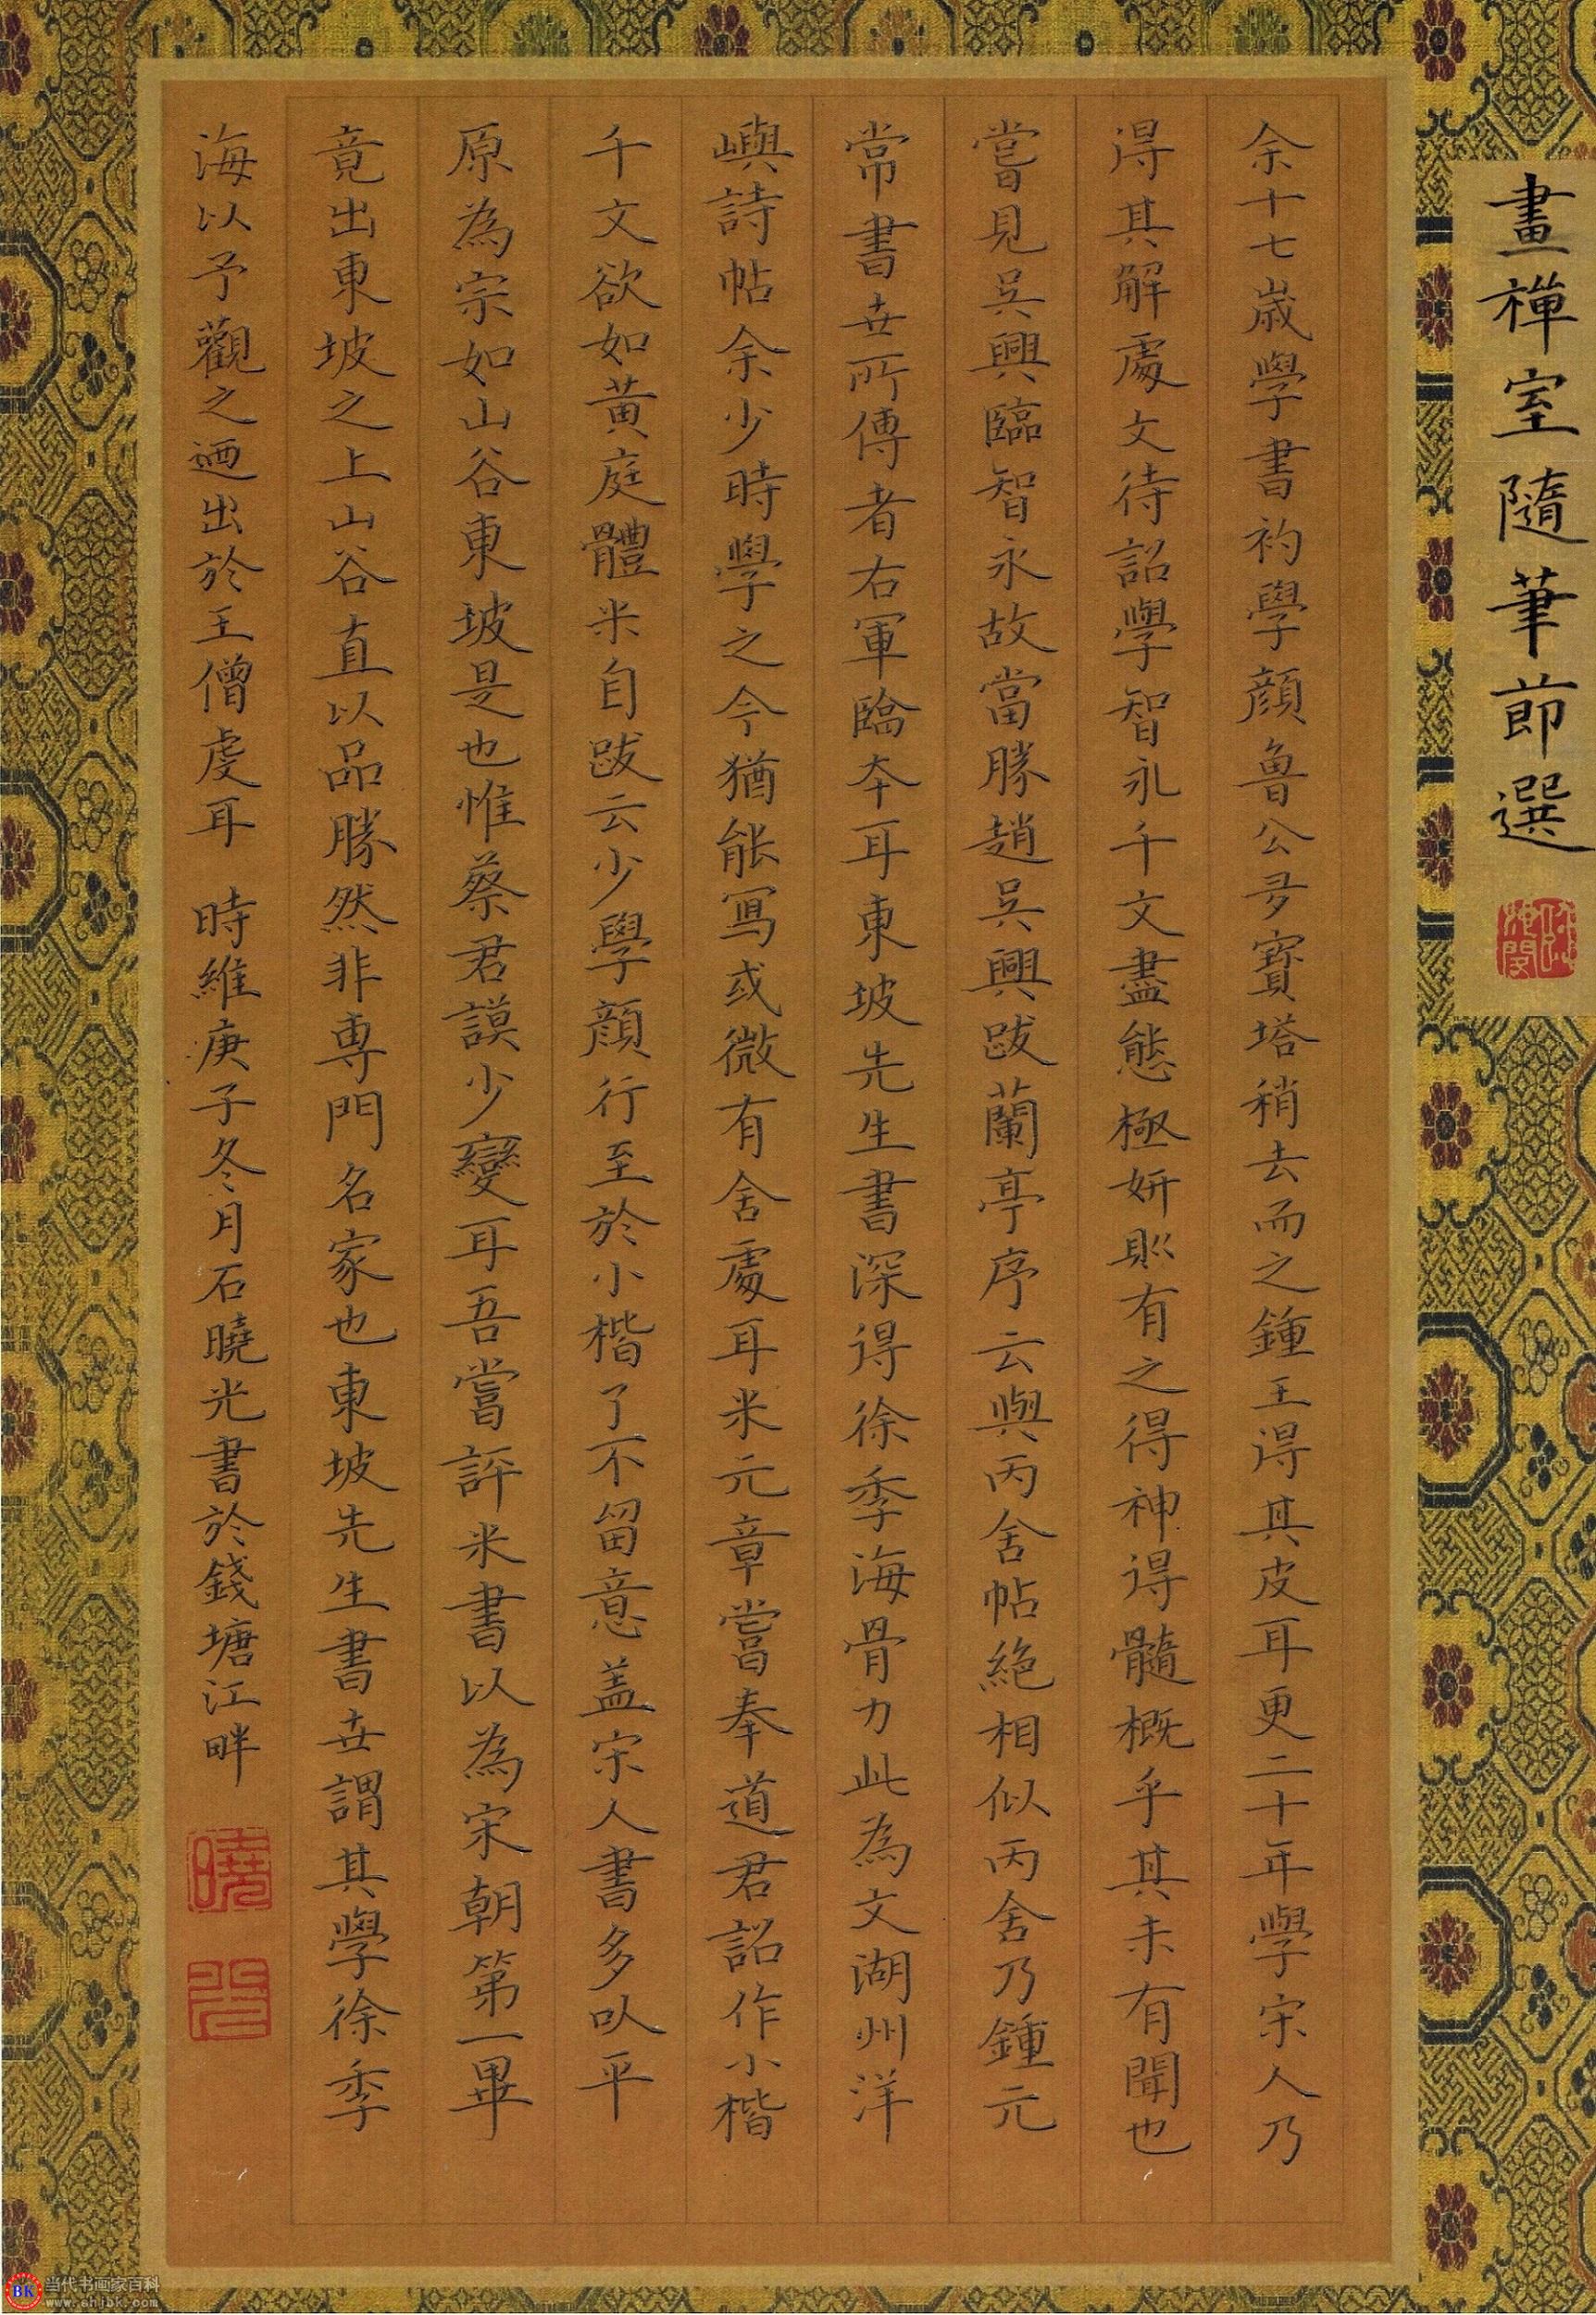 畫禪室隨筆節選
余十七歲學書初學顏魯公多寶塔稍去而之鍾王得其皮耳更二十年學宋人乃
得其解處文待詔學智永千文盡態極妍則有之得神得髓概乎其未有聞也
嘗見吳興臨智永故當勝趙吳興跋蘭亭序云與丙舍帖絕相似丙舍乃鍾元
常書世所傳者右軍臨本耳東坡先生書深得徐季海骨力此為文湖州洋
嶼詩帖余少時學之今猶能寫或微有舍處耳米元章嘗奉道君詔作小楷
千文欲如黃庭體米自跋云少學顏行至於小楷了不留意盖宋人書多以平
原為宗如山谷東坡是也惟蔡君謨少變耳吾嘗評米書以為宋朝第一畢
竟出東坡之上山谷直以品勝然非專門名家也東坡先生書世謂其學徐季
海以予觀之迺出於王僧虔耳 時維庚子冬月石曉光書於錢塘江畔
曉
光
当代书画家百科
www.shjbk.com
BK